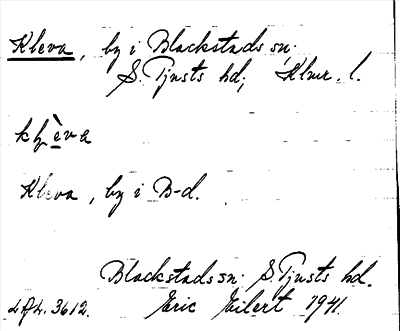 Kleva, by i Blackstads sn;
S. Tjusts hd; Klmr. l.
Kleva, by i B-d.
Blackstads sn. S. Tjusts hd.
Eric Eilert 1941.